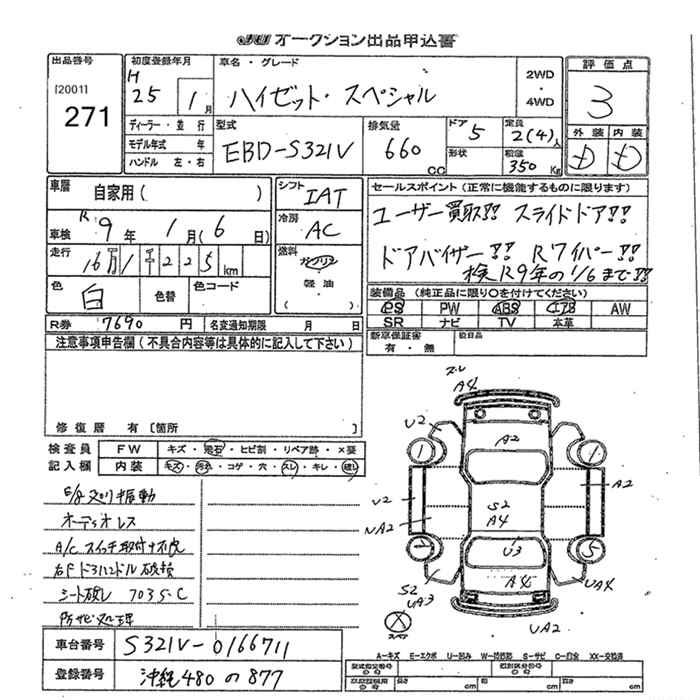 JU オークション出品申込書
出品番号
[2001]
271
初度登録年月
H
25 1月
車名・グレード
ハイゼット・スペシャル
2WD
・
4WD
評価点
3
外装 内装
D D
ディーラー・並行
モデル年式 年
ハンドル 左・右
型式
EBD-S321V
排気量
660 CC
ドア 5
形状
定員
2(4)人
積載
350 Kg
車歴 自家用( )
車検 R 9年 1月(6日)
走行 16万1千225km
シフト IAT
冷房 AC
燃料 ガソリン
軽油
色 白 色替 色コード
R券 7690円 名変通知期限 月 日
セールスポイント(正常に機能するものに限ります)
ユーザー買取!! スライドドア!!
ドアバイザー!! Rワイパー!!
検R9年の1/6まで!!
装備品(純正品に限り○を付けてください)
PS PW ABS エアB AW
SR ナビ TV 本革
新車保証書
有・無
後日品
注意事項申告欄(不具合内容等は具体的に記入して下さい)
修復歴 有〔箇所 〕
検査員
記入欄
FW キズ・飛石・ヒビ割・リペア跡・×要
内装 キズ・汚れ・コゲ・穴・スレ・キレ・破レ
オーディオレス
A/Cスイッチ取付ケ不良
シート破レ
防サビ処理
車台番号 S321V-0166711
登録番号 沖縄480の877
スレ
A4
U2
A2
1
1
A2
U2
S2
A4
NA2
U3
2
5
S2
UA3
A4
UA4
UA2
スペア
A=キズ E=エクボ U=凹み W=補修跡 S=サビ C=腐食 XX=交換済
cm cm cm cm